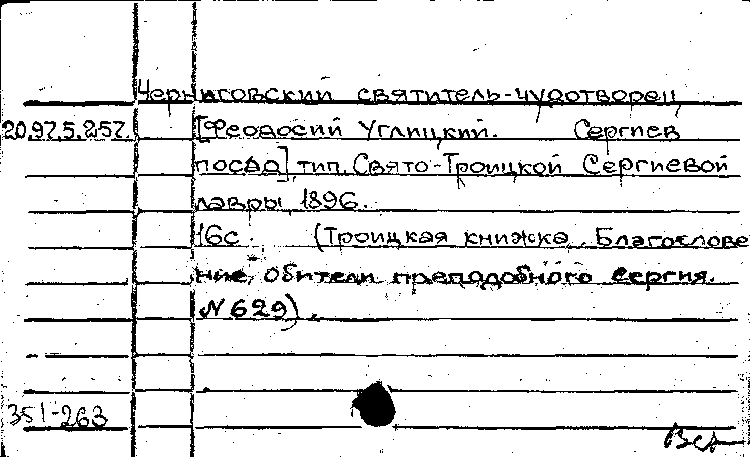 Черниговский святитель-чудотворец
20.97.5.257. [Феодосий Углицкий. Сергиев
посад], тип. Свято-Троицкой Сергиевой
лавры, 1896.
16с. (Троицкая книжка. Благослове
ние обители преподобного Сергия.
N 629).
351-263